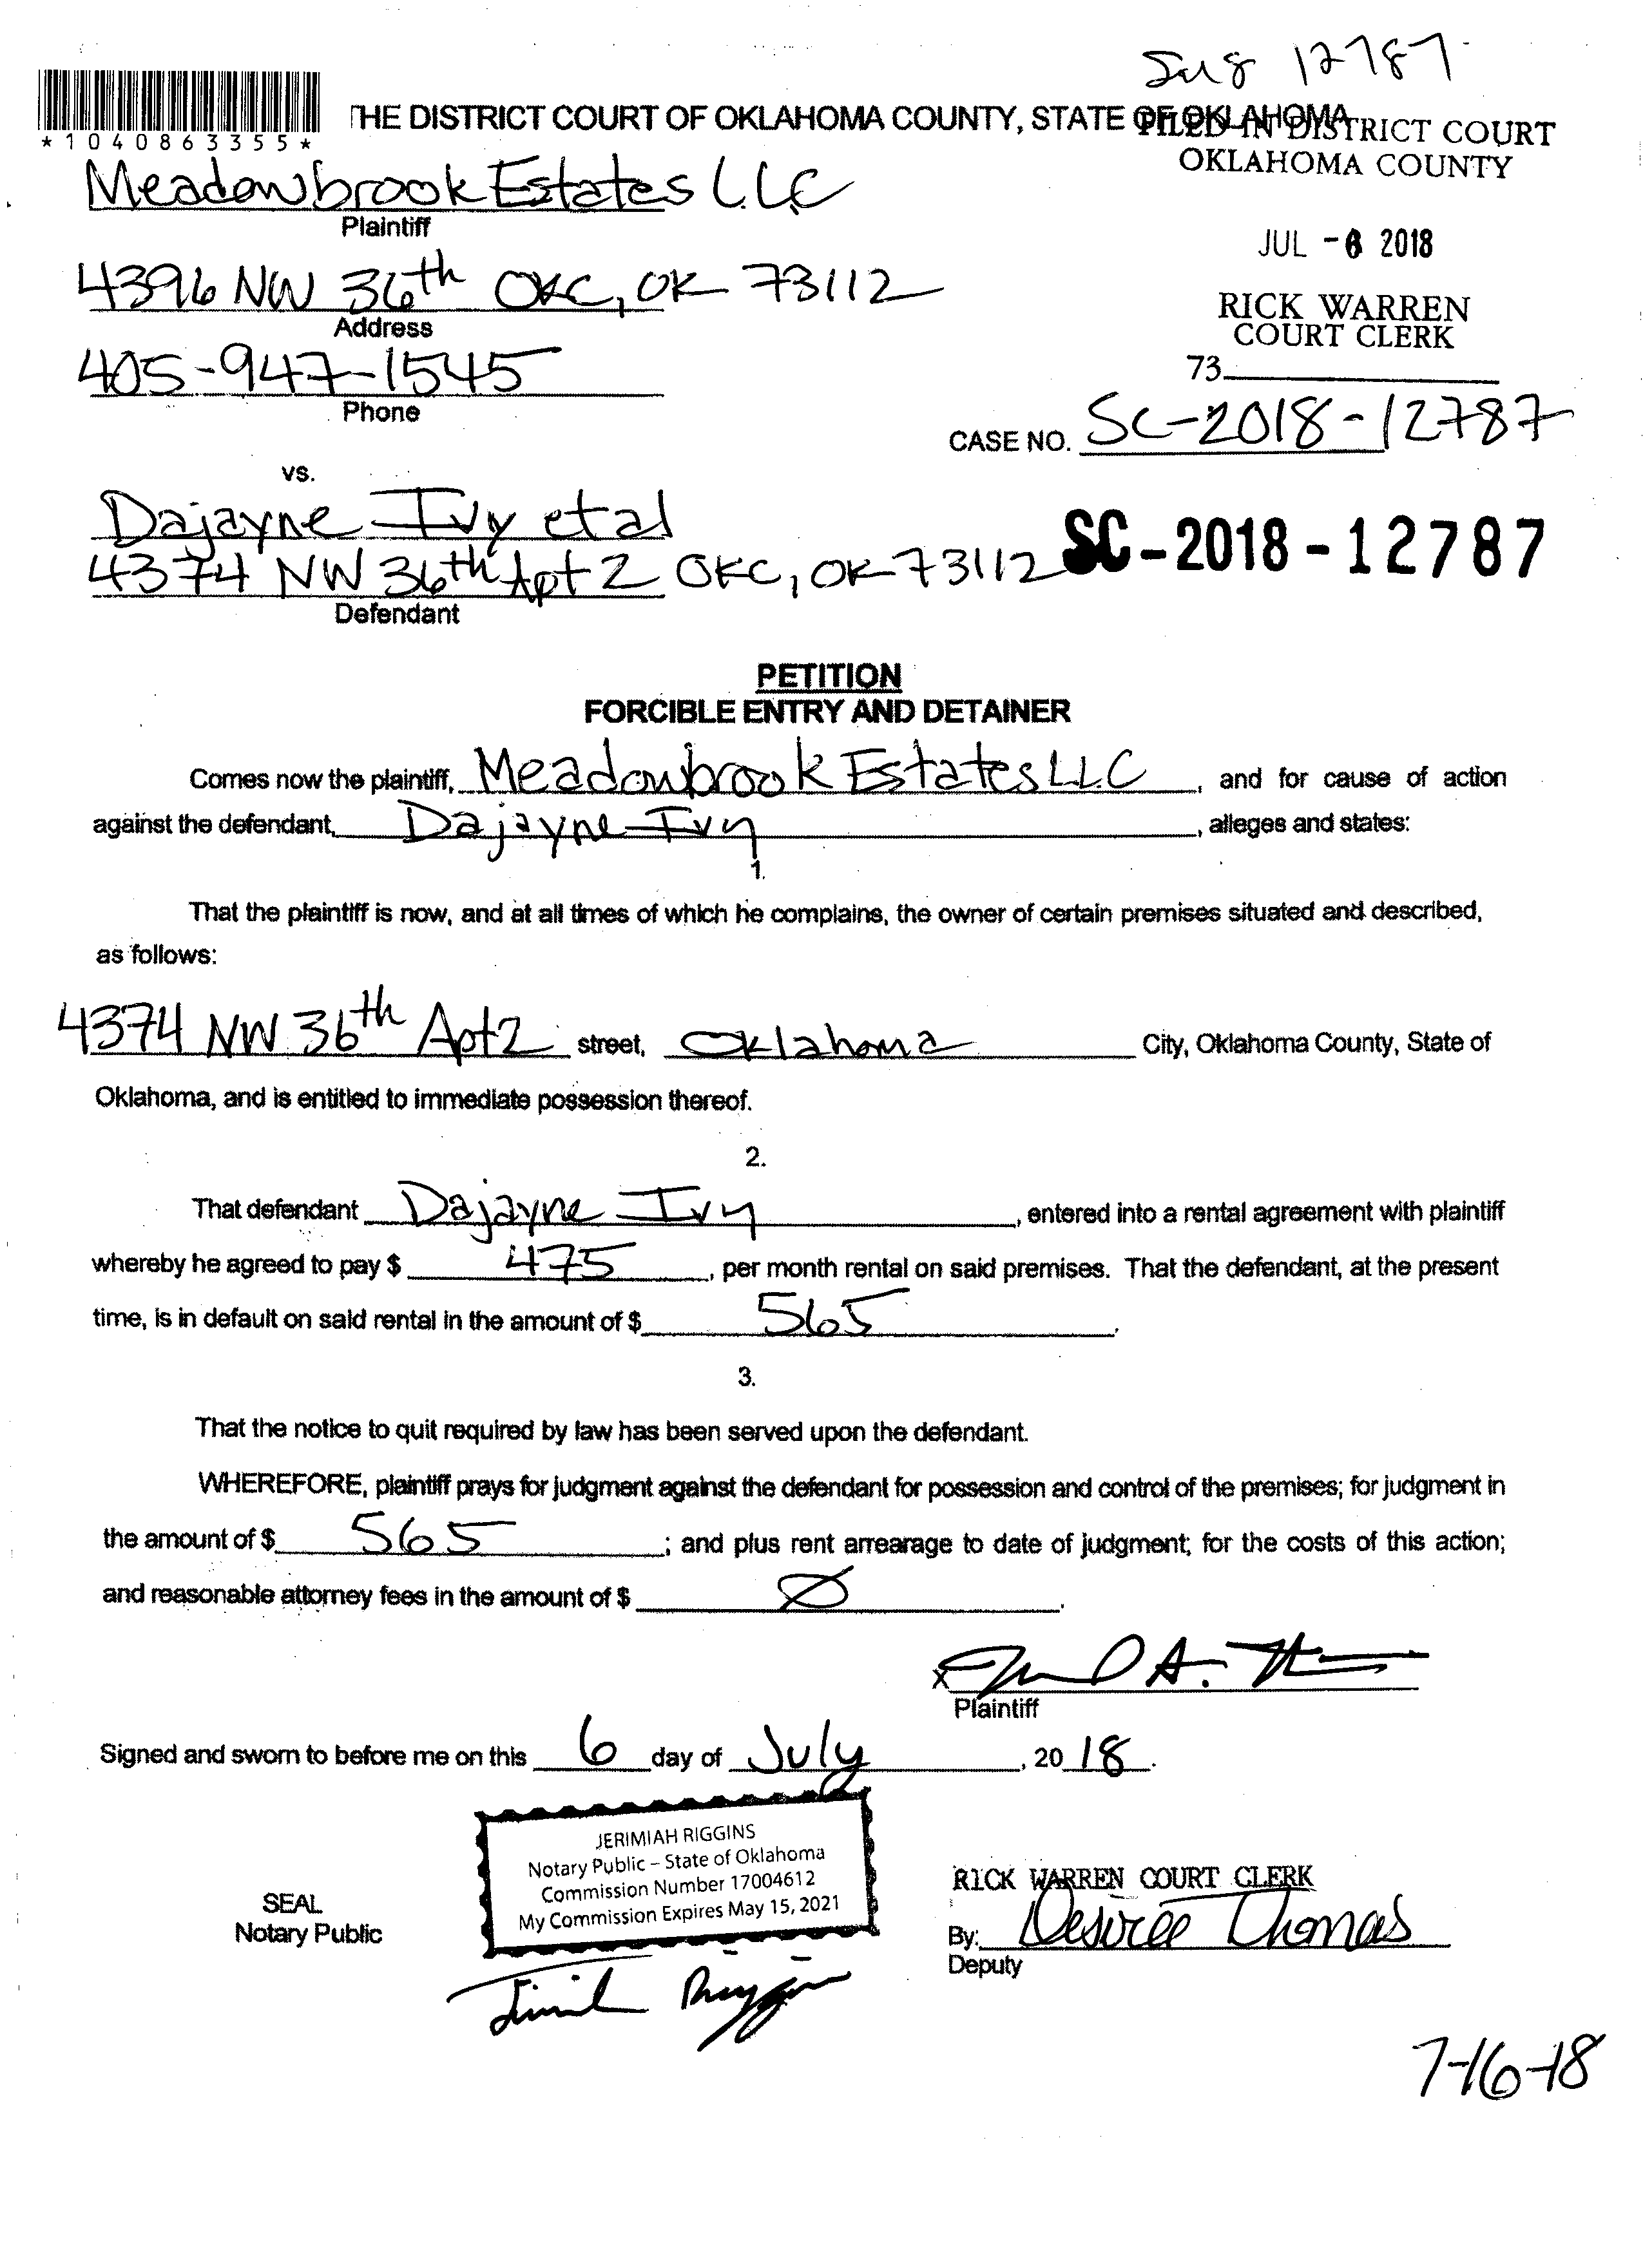 12787
*1040863355*
THE DISTRICT COURT OF OKLAHOMA COUNTY, STATE OF OKLAHOMA
FILED IN DISTRICT COURT
OKLAHOMA COUNTY
Meadowbrook Estates LLC
Plaintiff
JUL -6 2018
4396 NW 36th OKC, OK 73112
Address
RICK WARREN
COURT CLERK
405-947-1545
Phone
73
CASE NO. SC-2018-12787
vs.
Dajayne Ivy et al
4374 NW 36th Apt 2 OKC, OK 73112
SC-2018-12787
Defendant
PETITION
FORCIBLE ENTRY AND DETAINER
Comes now the plaintiff, Meadowbrook Estates LLC, and for cause of action
against the defendant, Dajayne Ivy, alleges and states:
1.
That the plaintiff is now, and at all times of which he complains, the owner of certain premises situated and described,
as follows:
4374 NW 36th Apt 2 street, Oklahoma City, Oklahoma County, State of
Oklahoma, and is entitled to immediate possession thereof.
2.
That defendant Dajayne Ivy, entered into a rental agreement with plaintiff
whereby he agreed to pay $ 475, per month rental on said premises. That the defendant, at the present
time, is in default on said rental in the amount of $ 565.
3.
That the notice to quit required by law has been served upon the defendant.
WHEREFORE, plaintiff prays for judgment against the defendant for possession and control of the premises; for judgment in
the amount of $ 565; and plus rent arrearage to date of judgment; for the costs of this action;
and reasonable attorney fees in the amount of $ Ø.
x
Plaintiff
Signed and sworn to before me on this 6 day of July, 20 18.
JERIMIAH RIGGINS
Notary Public – State of Oklahoma
Commission Number 17004612
My Commission Expires May 15, 2021
SEAL
Notary Public
RICK WARREN COURT CLERK
By: Desiree Thomas
Deputy
7-16-18